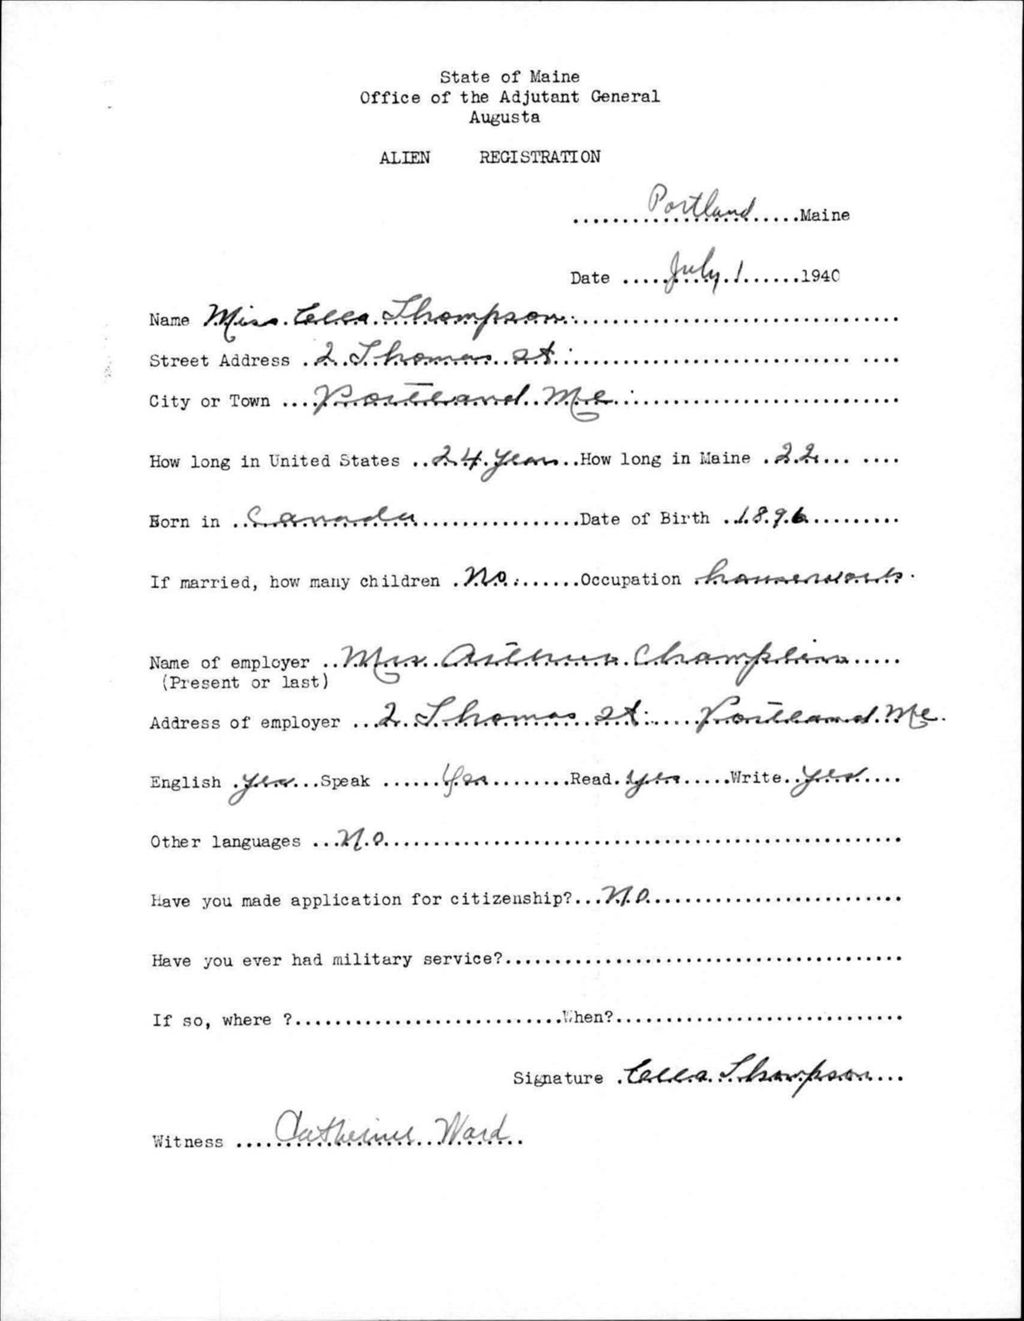 State of Maine
Office of the Adjutant General
Augusta
ALIEN REGISTRATION
Portland Maine
Date July 1 1940
Name Miss. Ella Thompson
Street Address 2 Thomas St.
City or Town Portland Me.
How long in United States 24 years How long in Maine 22
Born in Canada Date of Birth 1896
If married, how many children No. Occupation housework
Name of employer Mrs. Champlin
(Present or last)
Address of employer 2 Thomas St. Portland Me.
English yes Speak yes Read yes Write yes
Other languages No
Have you made application for citizenship? No
Have you ever had military service?
If so, where ? When?
Signature Ella Thompson
Witness Catherine Ward